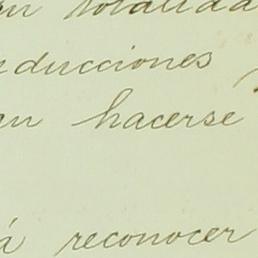 en totalidad
educciones y
an hacerse
á reconocer